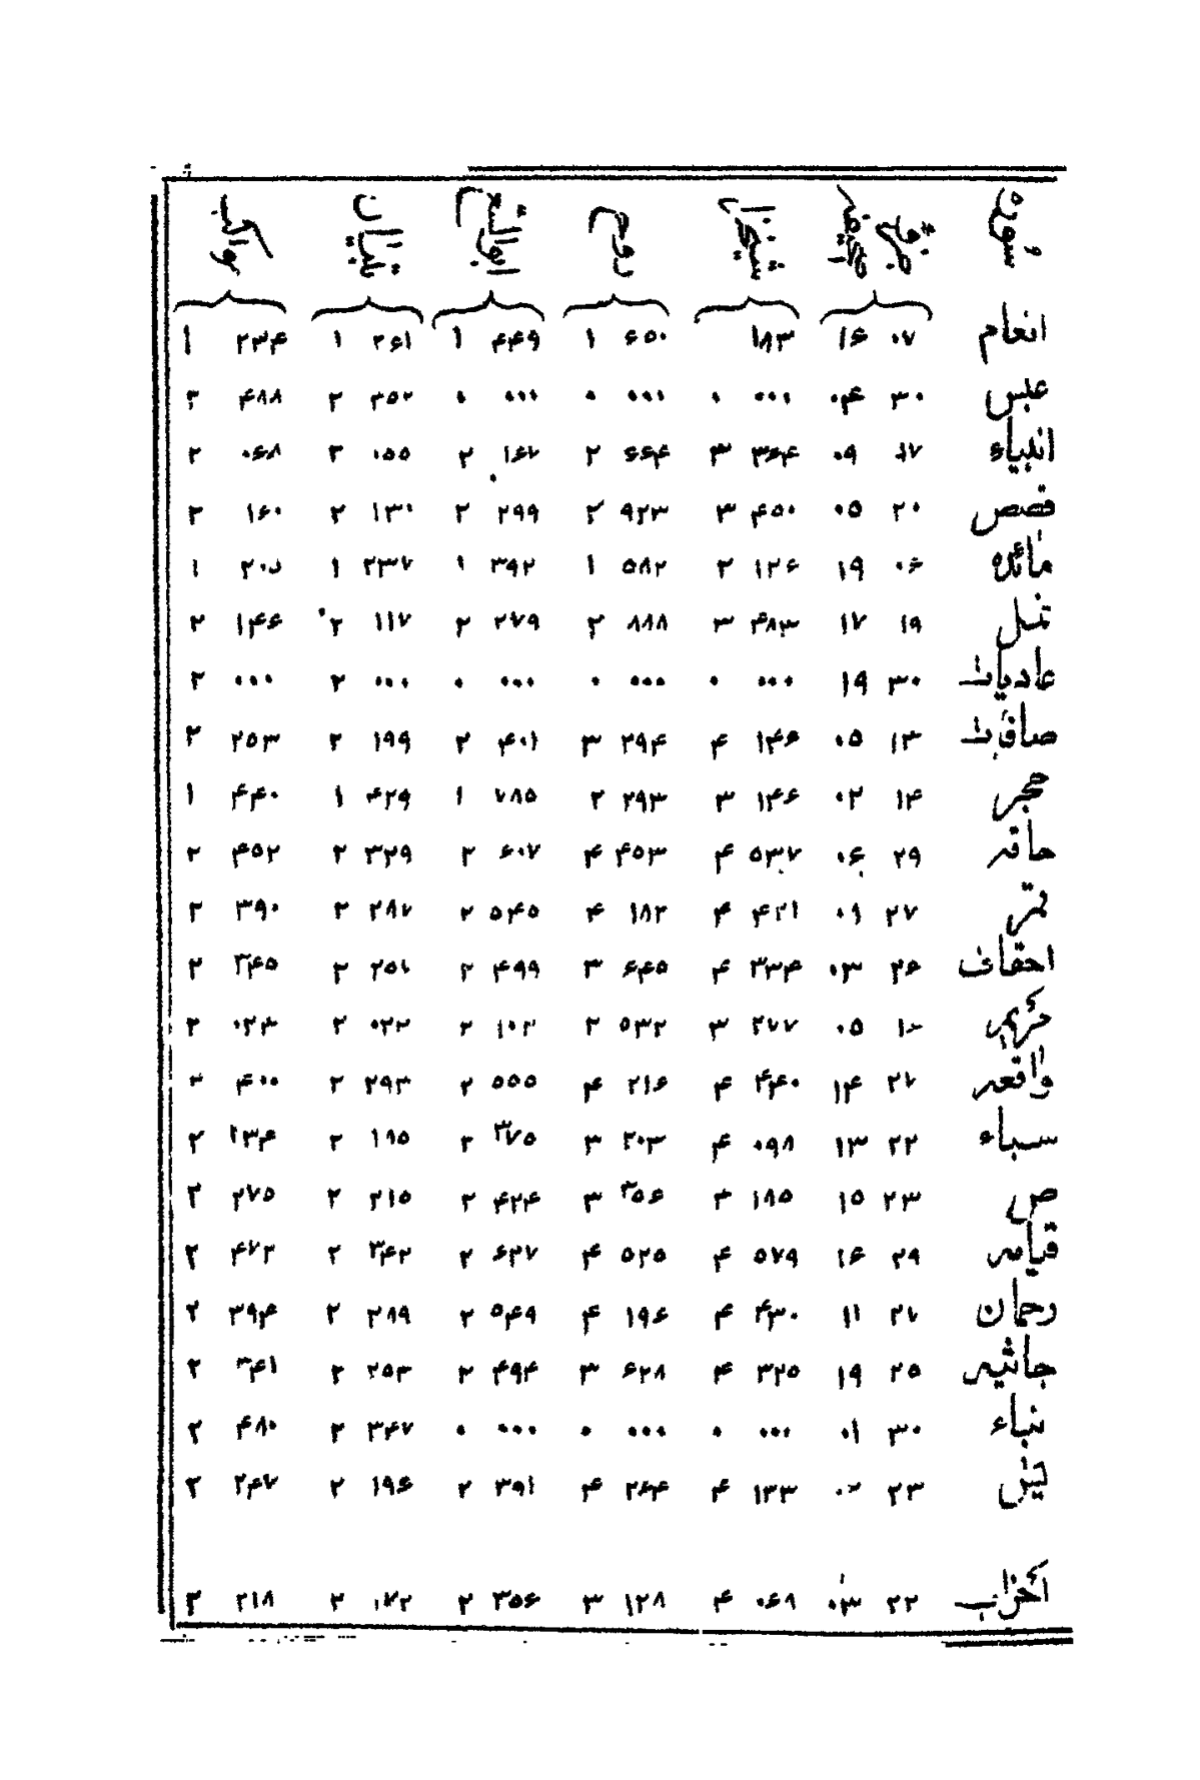 سوره جزء مجمع شیخ ابوالفتوح روح ابوالسعود تبیان مواکب
انعام ۰۷ ۱۶ ۱۸۳ ۶۵۰ ۱ ۴۴۹ ۱ ۲۶۱ ۱ ۲۳۴ ۱
عبس ۳۰ ۰۴ ۰۰۰ ۰ ۰۰۰ ۰ ۰۰۰ ۰ ۳۵۲ ۲ ۴۸۸ ۲
انبیاء ۱۷ ۰۹ ۳۶۴ ۳ ۶۶۴ ۲ ۱۶۷ ۲ ۰۵۵ ۲ ۰۶۸ ۲
قصص ۲۰ ۰۵ ۴۵۰ ۳ ۹۲۳ ۲ ۲۹۹ ۲ ۱۳۰ ۲ ۱۶۰ ۲
مائده ۰۶ ۱۹ ۱۲۶ ۲ ۵۸۲ ۱ ۳۹۲ ۱ ۲۳۷ ۱ ۲۰۵ ۱
نمل ۱۹ ۱۷ ۴۸۳ ۳ ۸۸۸ ۲ ۲۷۹ ۲ ۱۱۷ ۲ ۱۴۶ ۲
عادیات ۳۰ ۱۹ ۰۰۰ ۰ ۰۰۰ ۰ ۰۰۰ ۰ ۰۰۰ ۲ ۰۰۰ ۲
صافات ۱۳ ۰۵ ۱۴۶ ۴ ۲۹۴ ۳ ۴۰۱ ۲ ۱۹۹ ۲ ۲۵۳ ۲
حجر ۱۴ ۰۲ ۱۴۶ ۳ ۲۹۳ ۲ ۷۸۵ ۱ ۴۲۹ ۱ ۴۴۰ ۱
حاقه ۲۹ ۰۶ ۵۳۷ ۴ ۴۵۳ ۴ ۶۰۷ ۲ ۳۲۹ ۲ ۴۵۲ ۲
قمر ۲۷ ۰۹ ۴۲۱ ۴ ۱۸۲ ۴ ۵۴۵ ۲ ۲۸۷ ۲ ۳۹۰ ۲
احقاف ۲۶ ۰۳ ۳۳۴ ۴ ۶۴۵ ۳ ۴۹۹ ۲ ۲۵۶ ۲ ۳۴۵ ۲
مریم ۰۵ ۲۷۷ ۳ ۵۳۲ ۲ ۱۰۲ ۲ ۰۲۲ ۲ ۰۲۳ ۲
واقعه ۲۷ ۱۴ ۴۴۰ ۴ ۲۱۶ ۴ ۵۵۵ ۲ ۲۹۳ ۲ ۴۰۰ ۲
سباء ۲۲ ۱۳ ۰۹۸ ۴ ۲۰۳ ۳ ۳۷۵ ۲ ۱۸۵ ۲ ۱۳۴ ۲
ص ۲۳ ۱۵ ۱۸۵ ۴ ۳۵۶ ۳ ۴۲۴ ۲ ۲۱۵ ۲ ۲۷۵ ۲
قیامه ۲۹ ۱۶ ۵۷۹ ۴ ۵۲۵ ۴ ۶۲۷ ۲ ۳۴۲ ۲ ۴۷۲ ۲
رحمان ۲۷ ۱۱ ۴۳۰ ۴ ۱۹۶ ۴ ۵۴۹ ۲ ۲۸۹ ۲ ۳۹۴ ۲
جاثیه ۲۵ ۱۹ ۳۲۵ ۴ ۶۲۸ ۳ ۴۹۴ ۲ ۲۵۳ ۲ ۳۴۱ ۲
نباء ۳۰ ۰۱ ۰۰۰ ۰ ۰۰۰ ۰ ۰۰۰ ۰ ۳۴۷ ۲ ۴۸۰ ۲
یس ۲۳ ۰۲ ۱۳۳ ۴ ۲۶۴ ۴ ۳۹۱ ۲ ۱۹۶ ۲ ۲۴۷ ۲
احزاب ۲۲ ۰۳ ۰۶۹ ۴ ۱۲۸ ۳ ۳۵۶ ۲ ۱۷۲ ۲ ۲۱۸ ۲